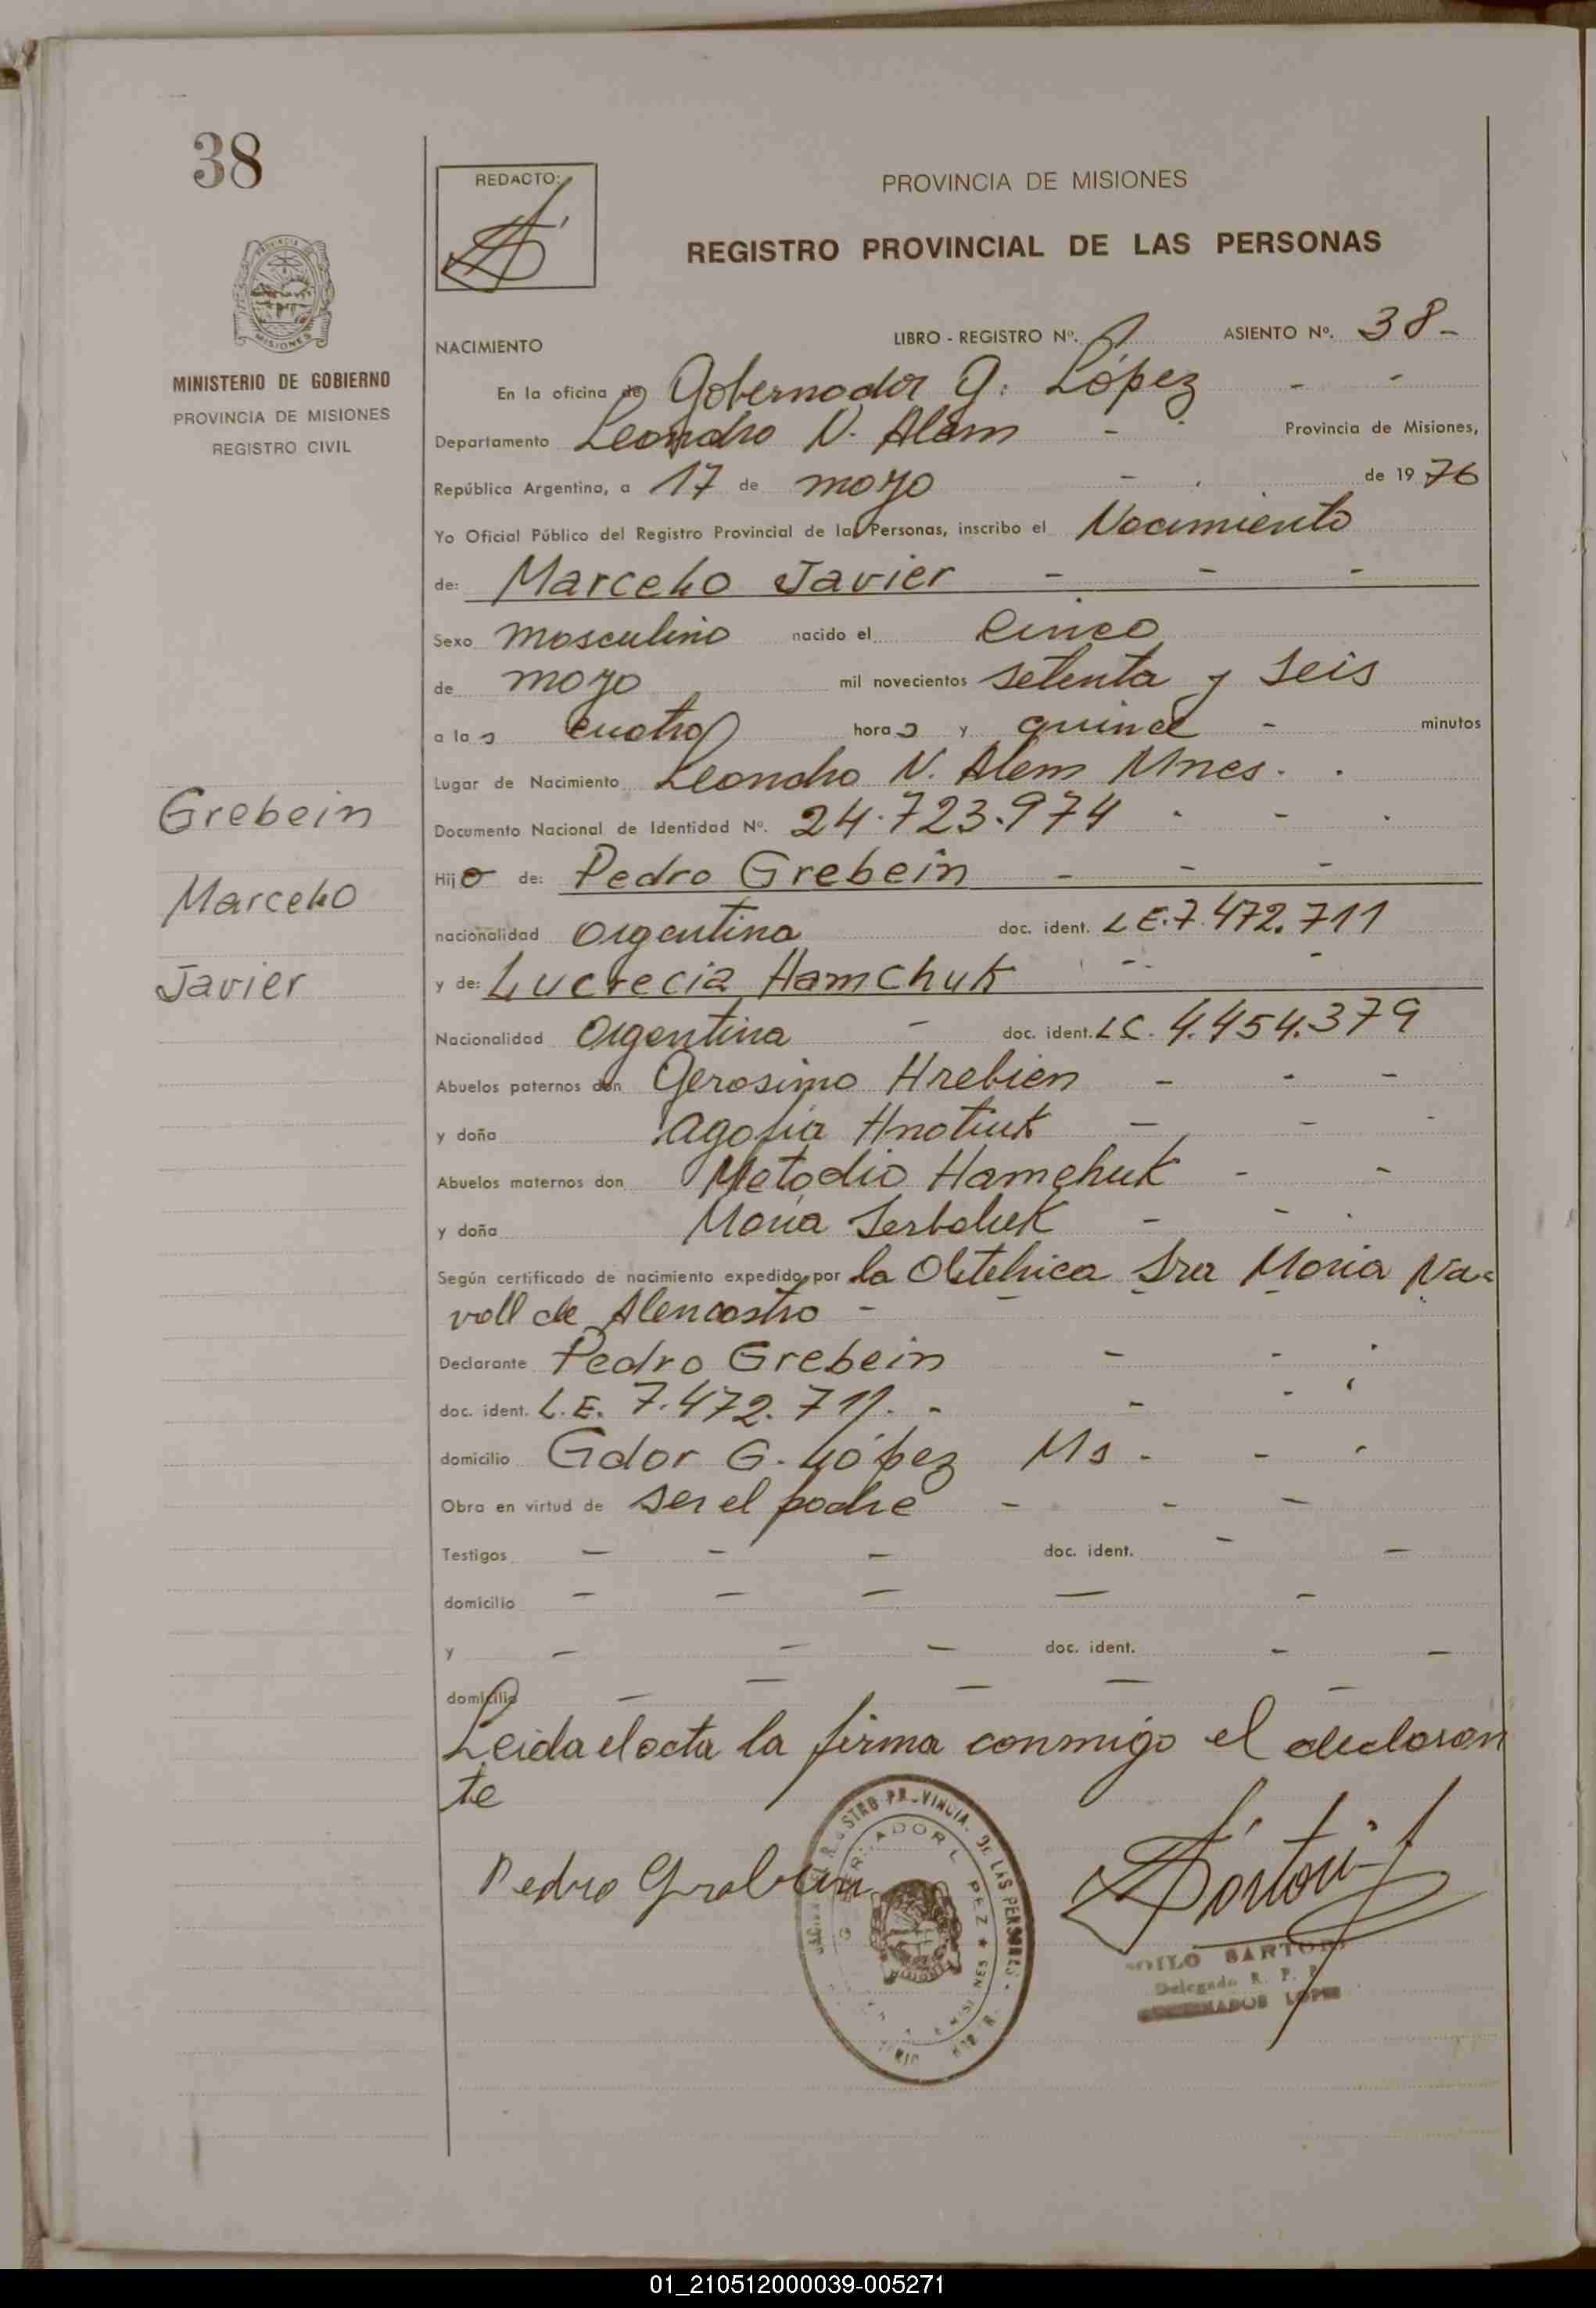 38
REDACTO:
PROVINCIA DE MISIONES
REGISTRO PROVINCIAL DE LAS PERSONAS
MINISTERIO DE GOBIERNO
PROVINCIA DE MISIONES
REGISTRO CIVIL
NACIMIENTO LIBRO - REGISTRO Nº. ASIENTO Nº. 38-
En la oficina de Gobernador G. López - -
Departamento Leandro N. Alem - - Provincia de Misiones,
República Argentina, a 17 de mayo - de 1976
Yo Oficial Público del Registro Provincial de las Personas, inscribo el Nacimiento
de: Marcelo Javier - - -
Sexo masculino nacido el cinco
de mayo mil novecientos setenta y seis
a las cuatro horas y quince - minutos
Lugar de Nacimiento Leandro N. Alem Mnes. .
Documento Nacional de Identidad Nº. 24.723.974 - - -
Hijo de: Pedro Grebein - - -
nacionalidad argentina doc. ident. L E. 7.472.711
y de: Lucrecia Hamchuk - -
Nacionalidad argentina - doc. ident. L C. 4.454.379
Abuelos paternos don Gerosimo Hrebien - - -
y doña Agafia Hnatiuk - - -
Abuelos maternos don Metodio Hamchuk - -
y doña Maria Serbaluk - - -
Según certificado de nacimiento expedido por la Obstetrica Sra Maria Na-
voll de Alencastro -
Declarante Pedro Grebein - - -
doc. ident. L.E. 7.472.711. - - -
domicilio Gdor G. López Ms - - -
Obra en virtud de ser el padre - - -
Testigos - - - doc. ident. - -
domicilio - - - - -
y - - - doc. ident. - -
domicilio - - - - -
Leida el acta la firma conmigo el declaran
te
Grebein
Marcelo
Javier
Pedro Grebein
Sartori
SARTORI
Delegado R. P. P.
GOBERNADOR LOPEZ
01_210512000039-005271